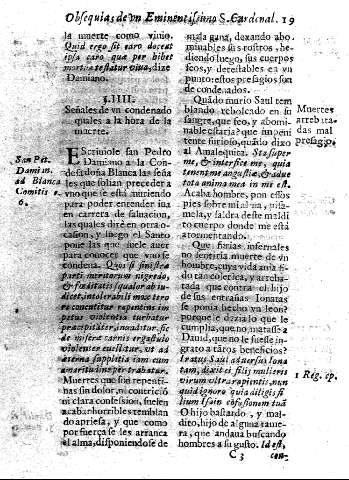 Obsequias de vn Eminentissimo S. Cardenal. 19
la muerte como viuio.
Quid ergo sit caro doceat
ipsa caro qua per hibet
mortua testatur viua, dize
Damiano.
§. IIII.
Señales de vn condenado
quales a la hora de la
muerte.
San Pet.
Damian.
ad Blanca
Comitis
6.
EScriuiole san Pedro
Damiano a la Con-
desa doña Blanca las seña
les que solian preceder a
vno que se està muriendo
para poder entender iua
en carrera de saluacion,
las quales dirè en otra o-
casion, y luego el Santo
pone las que suele auer
para conocer que vno se
condena. Quos si sinistra
parti meritorum nigredo,
& fœditatis squalor ab iu-
dicet, intolerabili mox terro
re concutitur repentini im
petus violentia turbatur
præcipitāter, inuaditur, sic
de misere carnis ergastulo
violenter euellitur, vt ad
æterna supplitia iam cum
amaritudine per trabatur.
Muertes que son repenti-
nas sin dolor, ni contricíō
ni clara confession, suelen
acabar horribles temblan
do apriesa, y que como
por fuerça se les arranca
el alma, disponiendose de
mala gana, dexando abo-
minables sus rostros, he-
diendo luego, sus cuerpos
feos, y detestables en vn
punto: estos presagios son
de condenados.
Quādo murio Saul tem
blando rebolcado en su
sangre, que feo, y abomi-
nable estaria? que impeni
tente furioso, quādo dixo
al Amalequita. Sta super
me, & interfice me, quia
tenent me angustie, & adue
tota anima mea in me est.
Acaba hombre, pon essos
pies sobre mi alma, pisa-
mela, y salda deste maldi
to cuerpo donde me està
atormentando.
Muertes
arrebata-
das mal
presagio.
Que furias infernales
no deziria muerte de vn
hombre, cuya vida auia si-
do tan colerica, y arreba-
tada que contra el hijo
de sus entrañas Ionatas
se ponia hecho vn leon?
porque le dezia lo que le
cumplia, que no matasse a
Dauid, que no le fuesse in-
grato a tātos beneficios?
Iratus Saul aduersus Iona
tam, dixit ei fili mulieris
virum vltro rapientis, nun
quid ignoro quia diligis fi
lium Isai in cōfusionem tuā
1 Reg. cp.
O hijo bastardo, y mal-
dito, hijo de alguna rame-
ra, que andaua buscando
hombres a su gusto. Id est,
C 3 con-